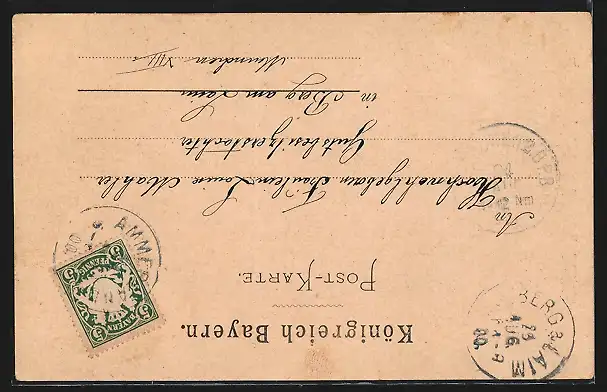 Königreich Bayern.
POST-KARTE.
An Hochwohlgeboren Fräulein Louise Mahler
Gutsbesitzerstochter
in Berg am Laim
München XIII
BAYERN
5 PFENNIG 5
AMMER
BERG B. LAIM
23
AUG.
00.